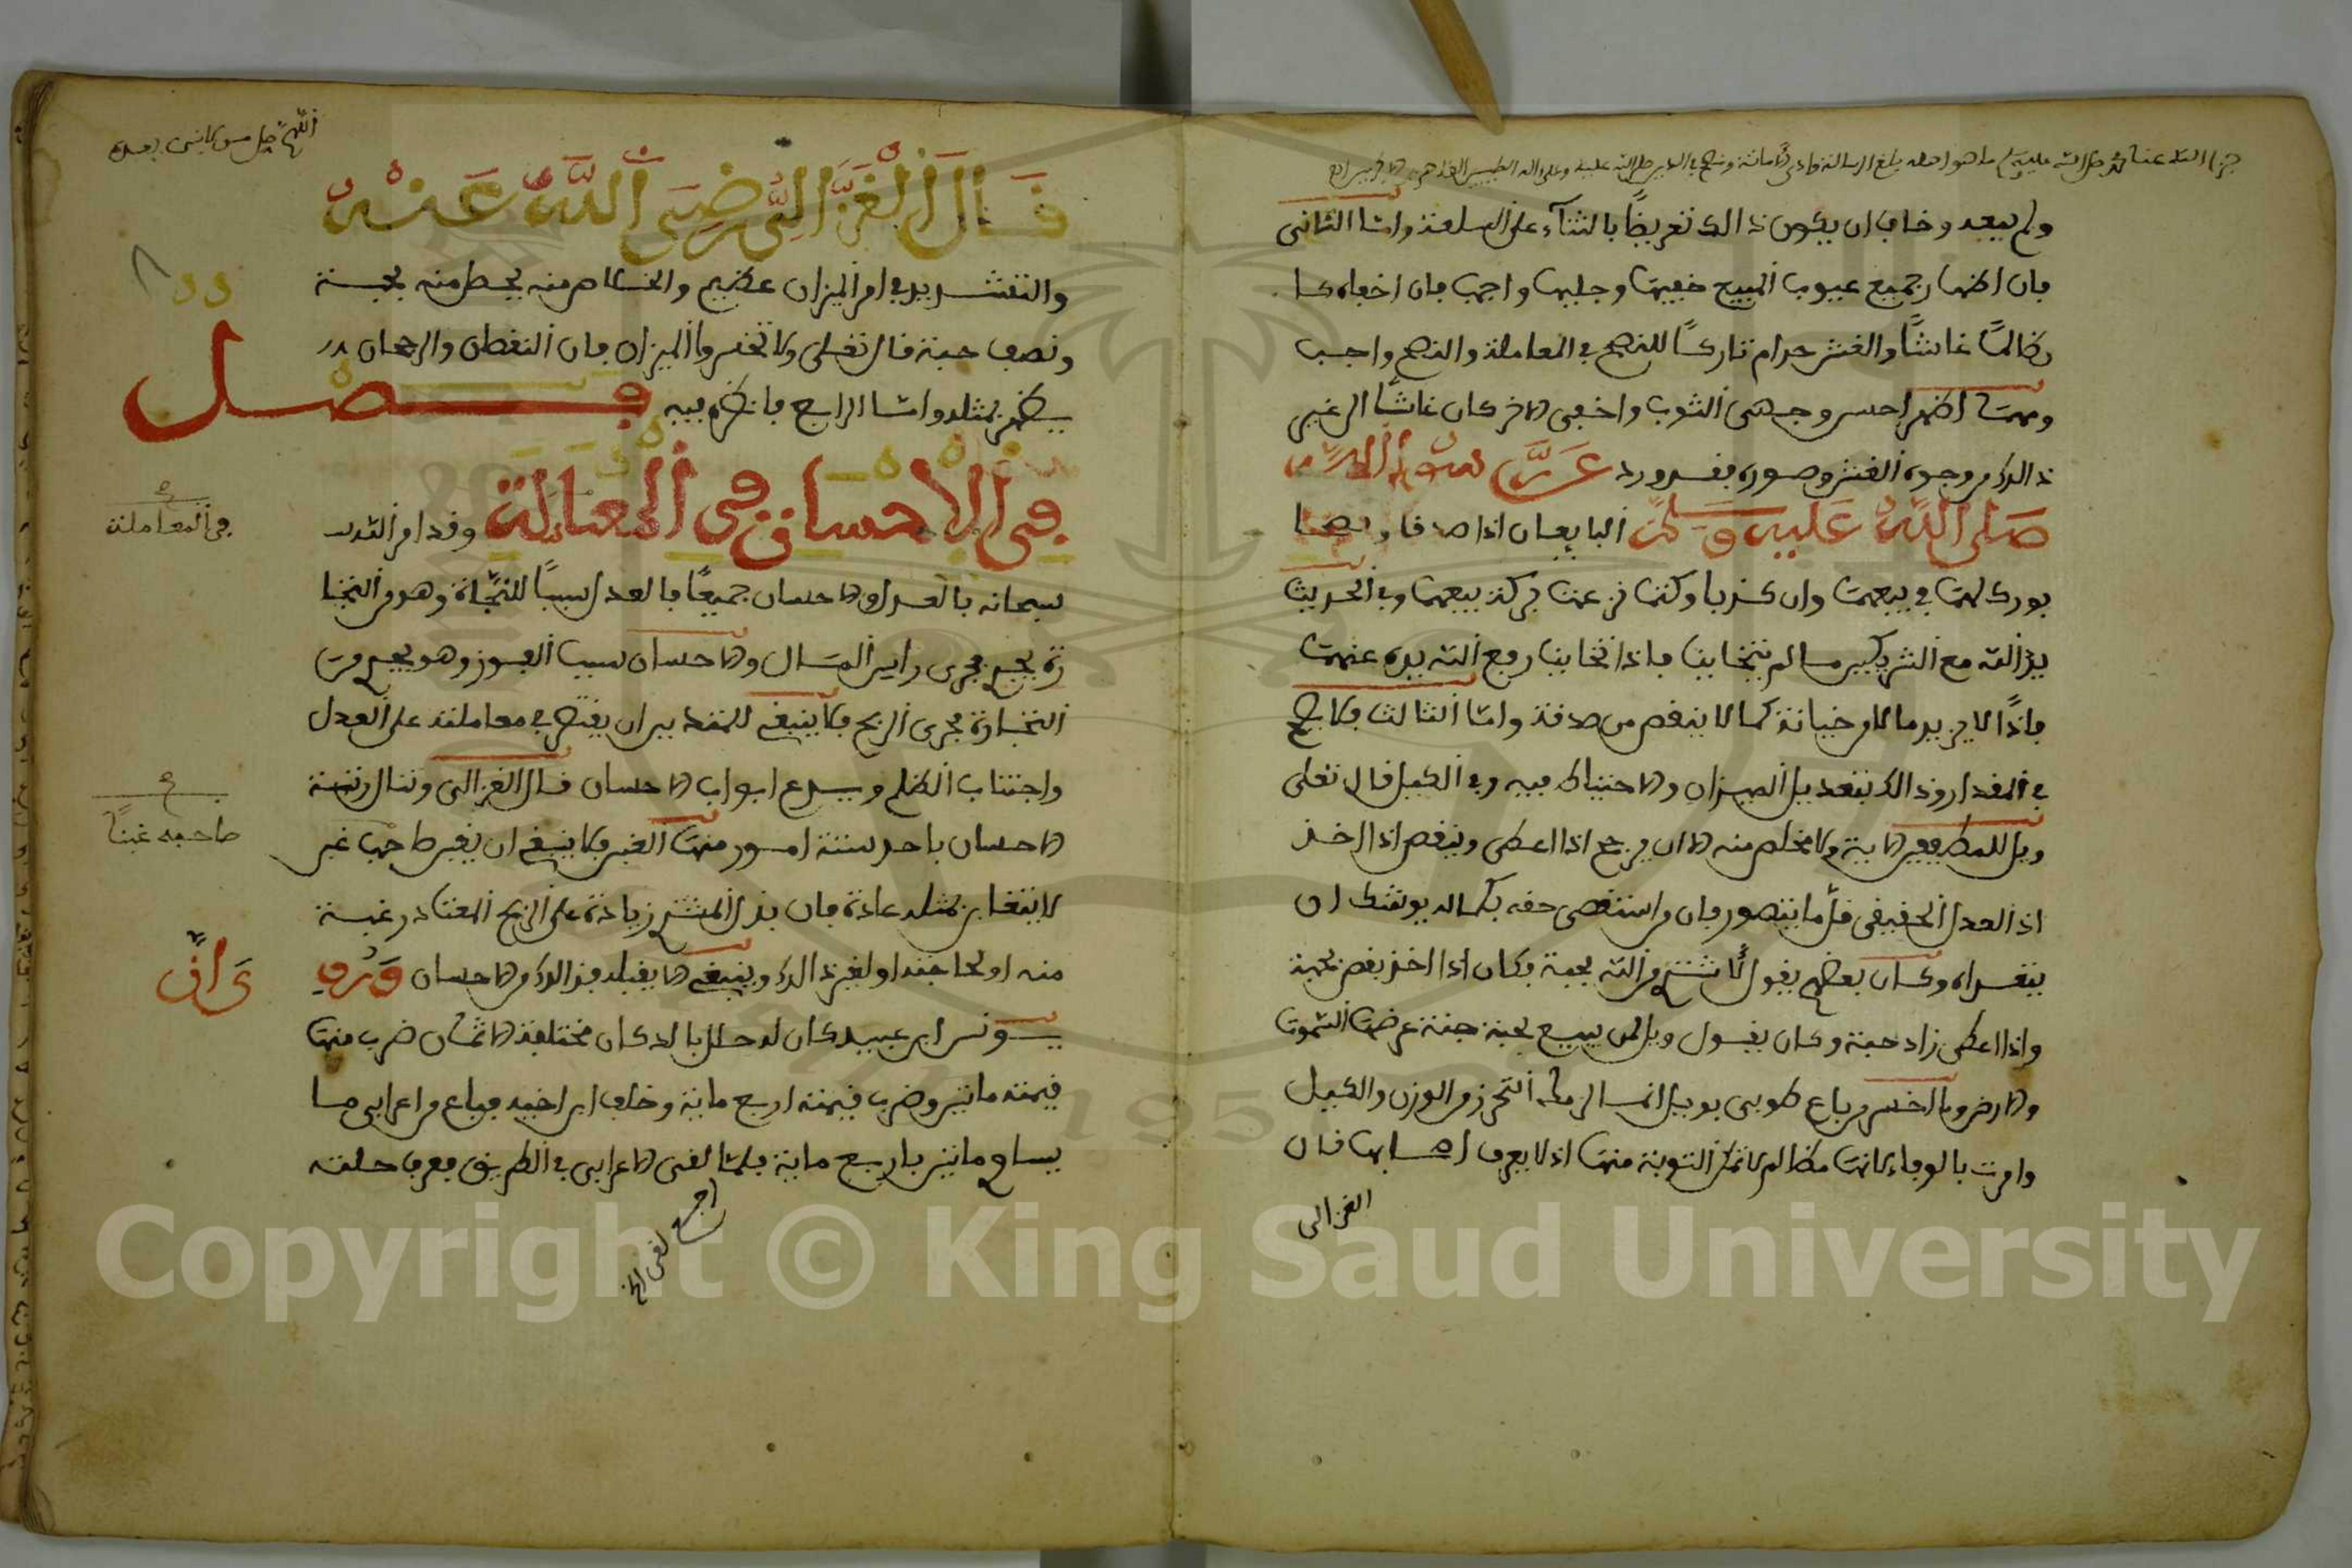 جزا الله عنا محمدا صلى الله عليه وسلم ما هو اهله بلغ الرسالة وادى الامانة ونصح في الدين صلى الله عليه وعلى اله الطيبين الطاهرين
ولم يبعد وخاف ان يكون ذالك تعريضًا بالثناء على السلعة واما الثانى
فان اظهار جميع عيوب المبيع خفيها وجليها واجب فان اخفاه كان
ظالمًا غاشًا والغش حرام تاركًا للنصح في المعاملة والنصح واجب
ومهما اظهر احسن وجهي الثوب واخفى الاخر كان غاشًا الى غير
ذالك من وجوه الغش وصوره فقد ورد عَن رسول الله
صَلى اللهُ عَليه وسَلم البايعان اذا صدقا ونصحا
بورك لهما في بيعهما وان كذبا وكتما نزعت بركة بيعهما وفي الحديث
يد الله مع الشريكين ما لم يتخاينا فاذا تخاينا رفع الله يده عنهما
فاذًا لا يزيد مال من خيانة كما لا ينقص من صدقة واما الثالث فلا يخفى
في المقدار وذالك بتعديل الميزان والاحتياط فيه وفي الكيل قال تعلى
ويل للمطففين الاية ولا مخلص منه الا ان يرجح اذا اعطى وينقص اذا اخذ
اذ العدل الحقيقي قلّما يتصور فان من استقصى حقه بكماله يوشك ان
يتعداه وكان بعضهم يقول لا اشتري من الله بحبة فكان اذا اخذ نقص بحبة
واذا اعطى زاد حبة وكان يقول ويل لمن يبيع بحبة جنة عرضها السموت
والارض وما اخسر من باع طوبى بويل انما الى مثله التحرز من الوزن والكيل
وامرت بالوفاء لانها مظالم لا تمكن التوبة منها اذ لا يعرف اصحابها قال
الغزالى
اللهم صل على من لا نبي بعده
قَال الغَزَّالِىّ رَضِىَ اللَّهُ عَنهُ
والتشديد في امر الميزان عظيم والخلاص منه يحصل منه بحبة
ونصف حبة قال تعلى ولا تخسروا الميزان فان النقصان والرجحان
يظهر بمثله واما الرابع فانظره فيه فصل
في الإحسان في المعاملة وقد امر الله
في المعاملة
سبحانه بالعدل والاحسان جميعًا فالعدل سببًا للنجاة وهو من التجا
رة يجري مجرى راس المال والاحسان سبب الفوز وهو يجري من
التجارة مجرى الربح فلا ينبغي للمتدين ان يقتصر في معاملته على العدل
واجتناب الظلم ويدع ابواب الاحسان قال الغزالى وتنال رتبة
الاحسان باحد ستة امور منها الغبن فلا ينبغي ان يغبن صاحبه غبنًا
صاحبه غبنًا
لا يتغابن بمثله عادة فان بذل المشتري زيادة على الربح المعتاد رغبة
منه او لحاجته او لغير ذالك فينبغي الا يقبله فذالك من الاحسان وَرُوِي
يَ انَّ
يونس ابن عبيد كان له حلل بالدكان مختلفة الاثمان ضرب منها
قيمته مائتين وضرب قيمته اربع ماية وخلف ابن اخيه فباع من اعرابي ما
يساوي مائتين باربع ماية فلما لقى الاعرابي في الطريق فعرف حلته
ارجع لقى الخ
Copyright © King Saud University
1957